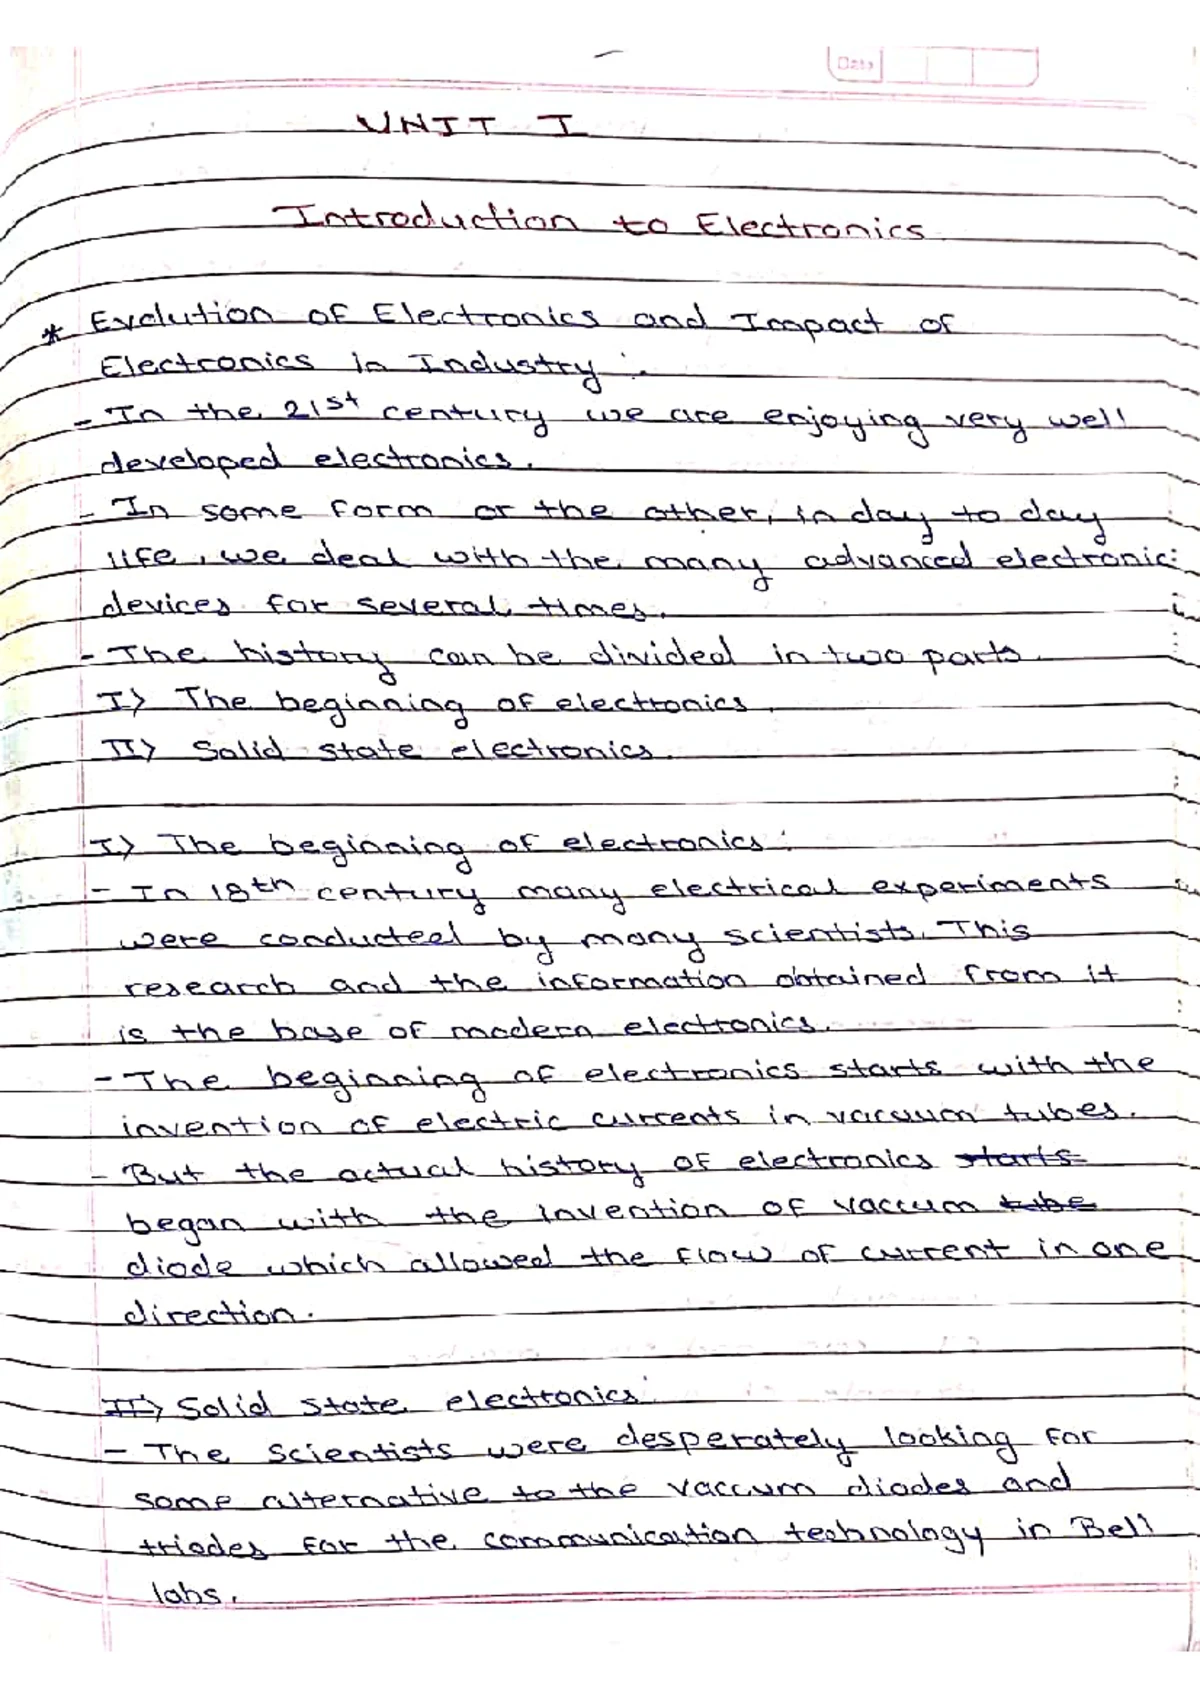 Date
UNIT I
Introduction to Electronics
* Evolution of Electronics and Impact of
Electronics in Industry :
- In the 21st century we are enjoying very well
developed electronics.
- In some form or the other, in day to day
life, we deal with the many advanced electronic
devices for several times.
- The history can be divided in two parts.
I) The beginning of electronics.
II) Solid state electronics.
I) The beginning of electronics :
- In 18th century many electrical experiments
were conducted by many scientists. This
research and the information obtained from it
is the base of modern electronics.
- The beginning of electronics starts with the
invention of electric currents in vacuum tubes.
- But the actual history of electronics starts
began with the invention of vaccum tube
diode which allowed the flow of current in one
direction.
II) Solid state electronics :
- The scientists were desperately looking for
some alternative to the vaccum diodes and
triodes for the communication technology in Bell
labs.